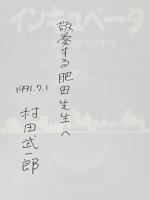 インキュベータ
敬愛する肥田先生へ
1991.7.1
村田武一郎